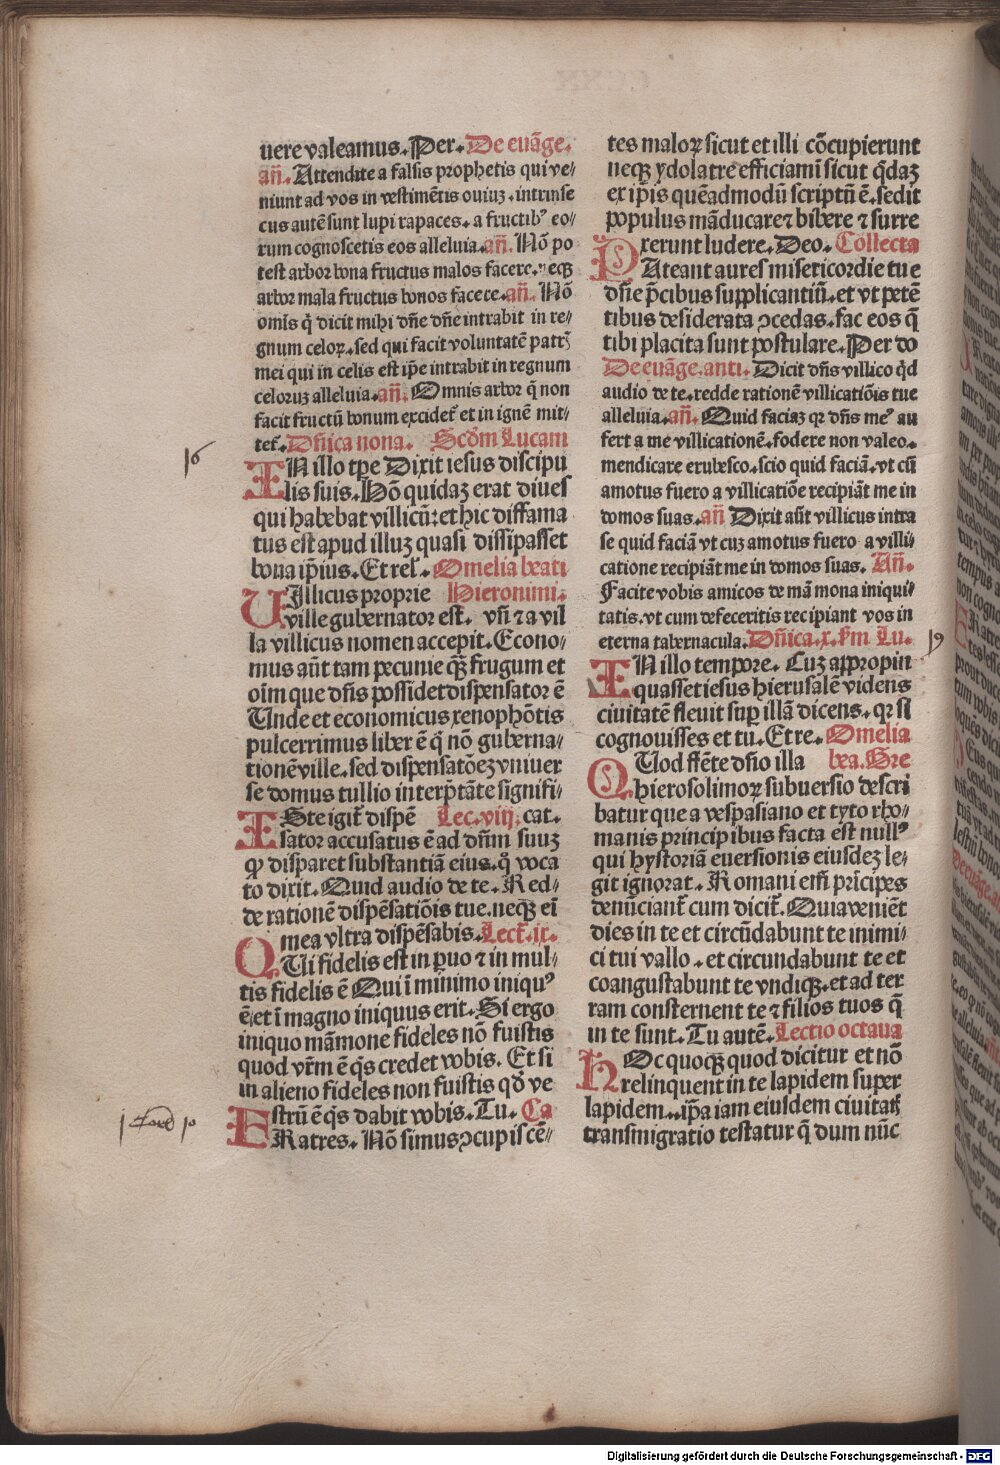 uere valeamus. Per. De euāge.
añ. Attendite a falsis prophetis qui ve⸗
niunt ad vos in vestimētis ouiuȝ. intrinse
cus autē sunt lupi rapaces. a fructibꝰ eo⸗
rum cognoscetis eos alleluia. añ. Nō po
test arbor bona fructus malos facere. neqȝ
arbor mala fructus bonos facere. añ. Nō
omīs q̄ dicit mihi dñe dñe intrabit in re⸗
gnum celoꝝ. sed qui facit voluntatē patrꝭ
mei qui in celis est ip̄e intrabit in regnum
celoruȝ alleluia. añ. Omnis arbor q̄ non
facit fructū bonum excidet̄ et in ignē mit⸗
tet̄. Dñica nona. Scd̄m Lucam
16
IN illo tp̄e Dixit iesus discipu
lis suis. Hō quidaȝ erat diues
qui habebat villicū: et hic diffama
tus est apud illuȝ quasi dissipasset
bona ip̄ius. Et rel̄. Omelia beati
VIllicus proprie Hieronimi.
ville gubernator est. vñ ⁊ a vil
la villicus nomen accepit. Econo⸗
mus aūt tam pecunie qȝ̄ frugum et
oīm que dñs possidet dispensator ē
Unde et economicus xenophōtis
pulcerrimus liber ē q̄ nō guberna⸗
tionē ville. sed dispensatōeȝ vniuer
se domus tullio interp̄tāte signifi⸗
ISte igit̄ dispē Lec. viij. cat.
sator accusatus ē ad dñm suuȝ
ꝙ disparet substantiā eius. q̄ voca
to dixit. Quid audio de te. Red⸗
de rationē dispēsatiōis tue. neqȝ eī
mea vltra dispēsabis. Lect̄. ix.
QUi fidelis est in ꝑuo ⁊ in mul⸗
tis fidelis ē Qui ī minimo iniquꝰ
ē et ī magno iniquus erit. Si ergo
iniquo māmone fideles nō fuistis
quod vr̄m ē q̄s credet vobis. Et si
in alieno fideles non fuistis qd̄ ve
strū ē q̄s dabit vobis. Tu. Ca
FRatres. Nō simus ꝯcupiscē⸗
10
tes maloꝝ sicut et illi cōcupierunt
neqȝ ydolatre efficiamī sicut q̄daȝ
ex ip̄is quēadmodū scriptū ē. sedit
populus māducare ⁊ bibere ⁊ surre
xerunt ludere. Deo. Collecta
PAteant aures misericordie tue
dñe p̄cibus supplicantiū. et vt petē
tibus desiderata ꝯcedas. fac eos q̄
tibi placita sunt postulare. Per do
De euāge. anti. Dicit dñs villico q̄d
audio de te. redde rationē villicatiōis tue
alleluia. añ. Quid faciaȝ qꝛ dñs meꝰ au
fert a me villicationē. fodere non valeo.
mendicare erubesco. scio quid faciā. vt cū
amotus fuero a villicatiōe recipiāt me in
domos suas. añ Dixit aūt villicus intra
se quid faciā vt cuȝ amotus fuero a villi⸗
catione recipiāt me in domos suas. Añ.
Facite vobis amicos de mā mona iniqui⸗
tatis. vt cum defeceritis recipiant vos in
eterna tabernacula. Dñica. x. ẜm Lu.
19
IN illo tempore. Cuȝ appropin
quasset iesus hierusalē videns
ciuitatē fleuit suꝑ illā dicens. qꝛ si
cognouisses et tu. Et re. Omelia
QUod flēte dño illa bea. Gre
hierosolimoꝝ subuersio descri
batur que a vespasiano et tyto rho⸗
manis principibus facta est nullꝰ
qui hystoriā euersionis eiusdeȝ le⸗
git ignorat. Romani eīm prīcipes
denūciant̄ cum dicit̄. Quia veniēt
dies in te et circūdabunt te inimi⸗
ci tui vallo. et circundabunt te et
coangustabunt te vndiqȝ. et ad ter
ram consternent te ⁊ filios tuos q̄
in te sunt. Tu autē. Lectio octaua
HOc quoqȝ quod dicitur et nō
relinquent in te lapidem super
lapidem.. ip̄a iam eiusdem ciuitatꝭ
transmigratio testatur q̄ dum nūc
Digitalisierung gefördert durch die Deutsche Forschungsgemeinschaft - DFG